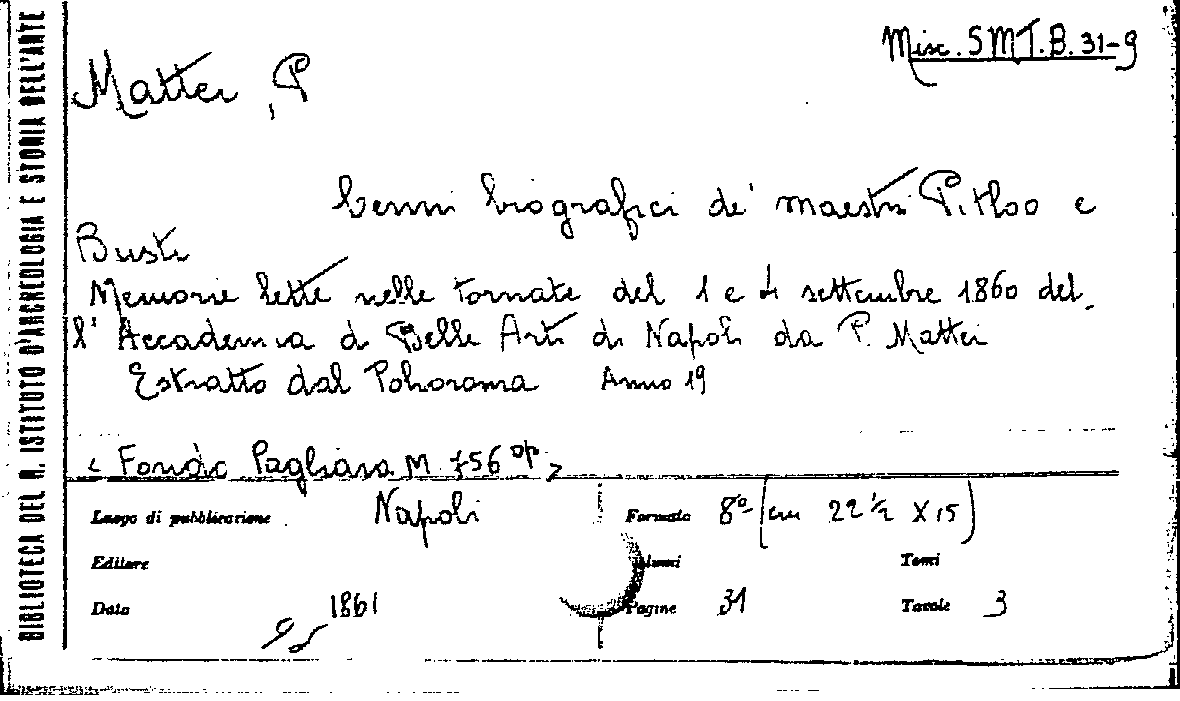 BIBLIOTECA DEL R. ISTITUTO D'ARCHEOLOGIA E STORIA DELL'ARTE
Misc. SMT.B. 31-9
Mattei, P
Cenni biografici de' maestri Pitloo e
Busti
Memorie lette nelle tornate del 1 e 4 settembre 1860 del
l'Accademia di Belle Arti di Napoli da P. Mattei
Estratto dal Poliorama Anno 19
< Fondo Pagliara M 756 op >
Luogo di pubblicazione Napoli Formato 8° (cm 22½ X 15)
Editore Volumi Tomi
Data 1861 Pagine 31 Tavole 3